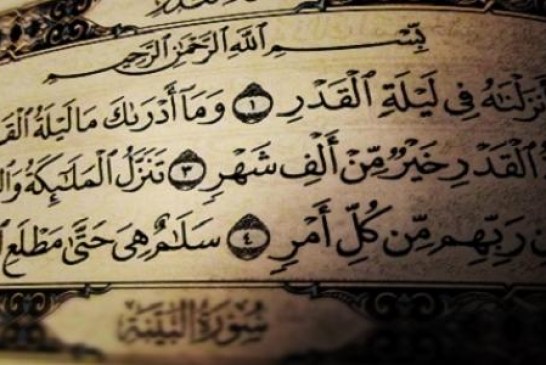 بِسْمِ ٱللَّهِ ٱلرَّحْمَٰنِ ٱلرَّحِيمِ
أَنزَلْنَٰهُ فِى لَيْلَةِ ٱلْقَدْرِ ١ وَمَآ أَدْرَىٰكَ مَا لَيْلَةُ
ٱلْقَدْرِ خَيْرٌ مِّنْ أَلْفِ شَهْرٍ ٣ تَنَزَّلُ ٱلْمَلَٰٓئِكَةُ
رَبِّهِم مِّن كُلِّ أَمْرٍ ٤ سَلَٰمٌ هِىَ حَتَّىٰ مَطْلَعِ
سُورَةُ البَيِّنَةِ